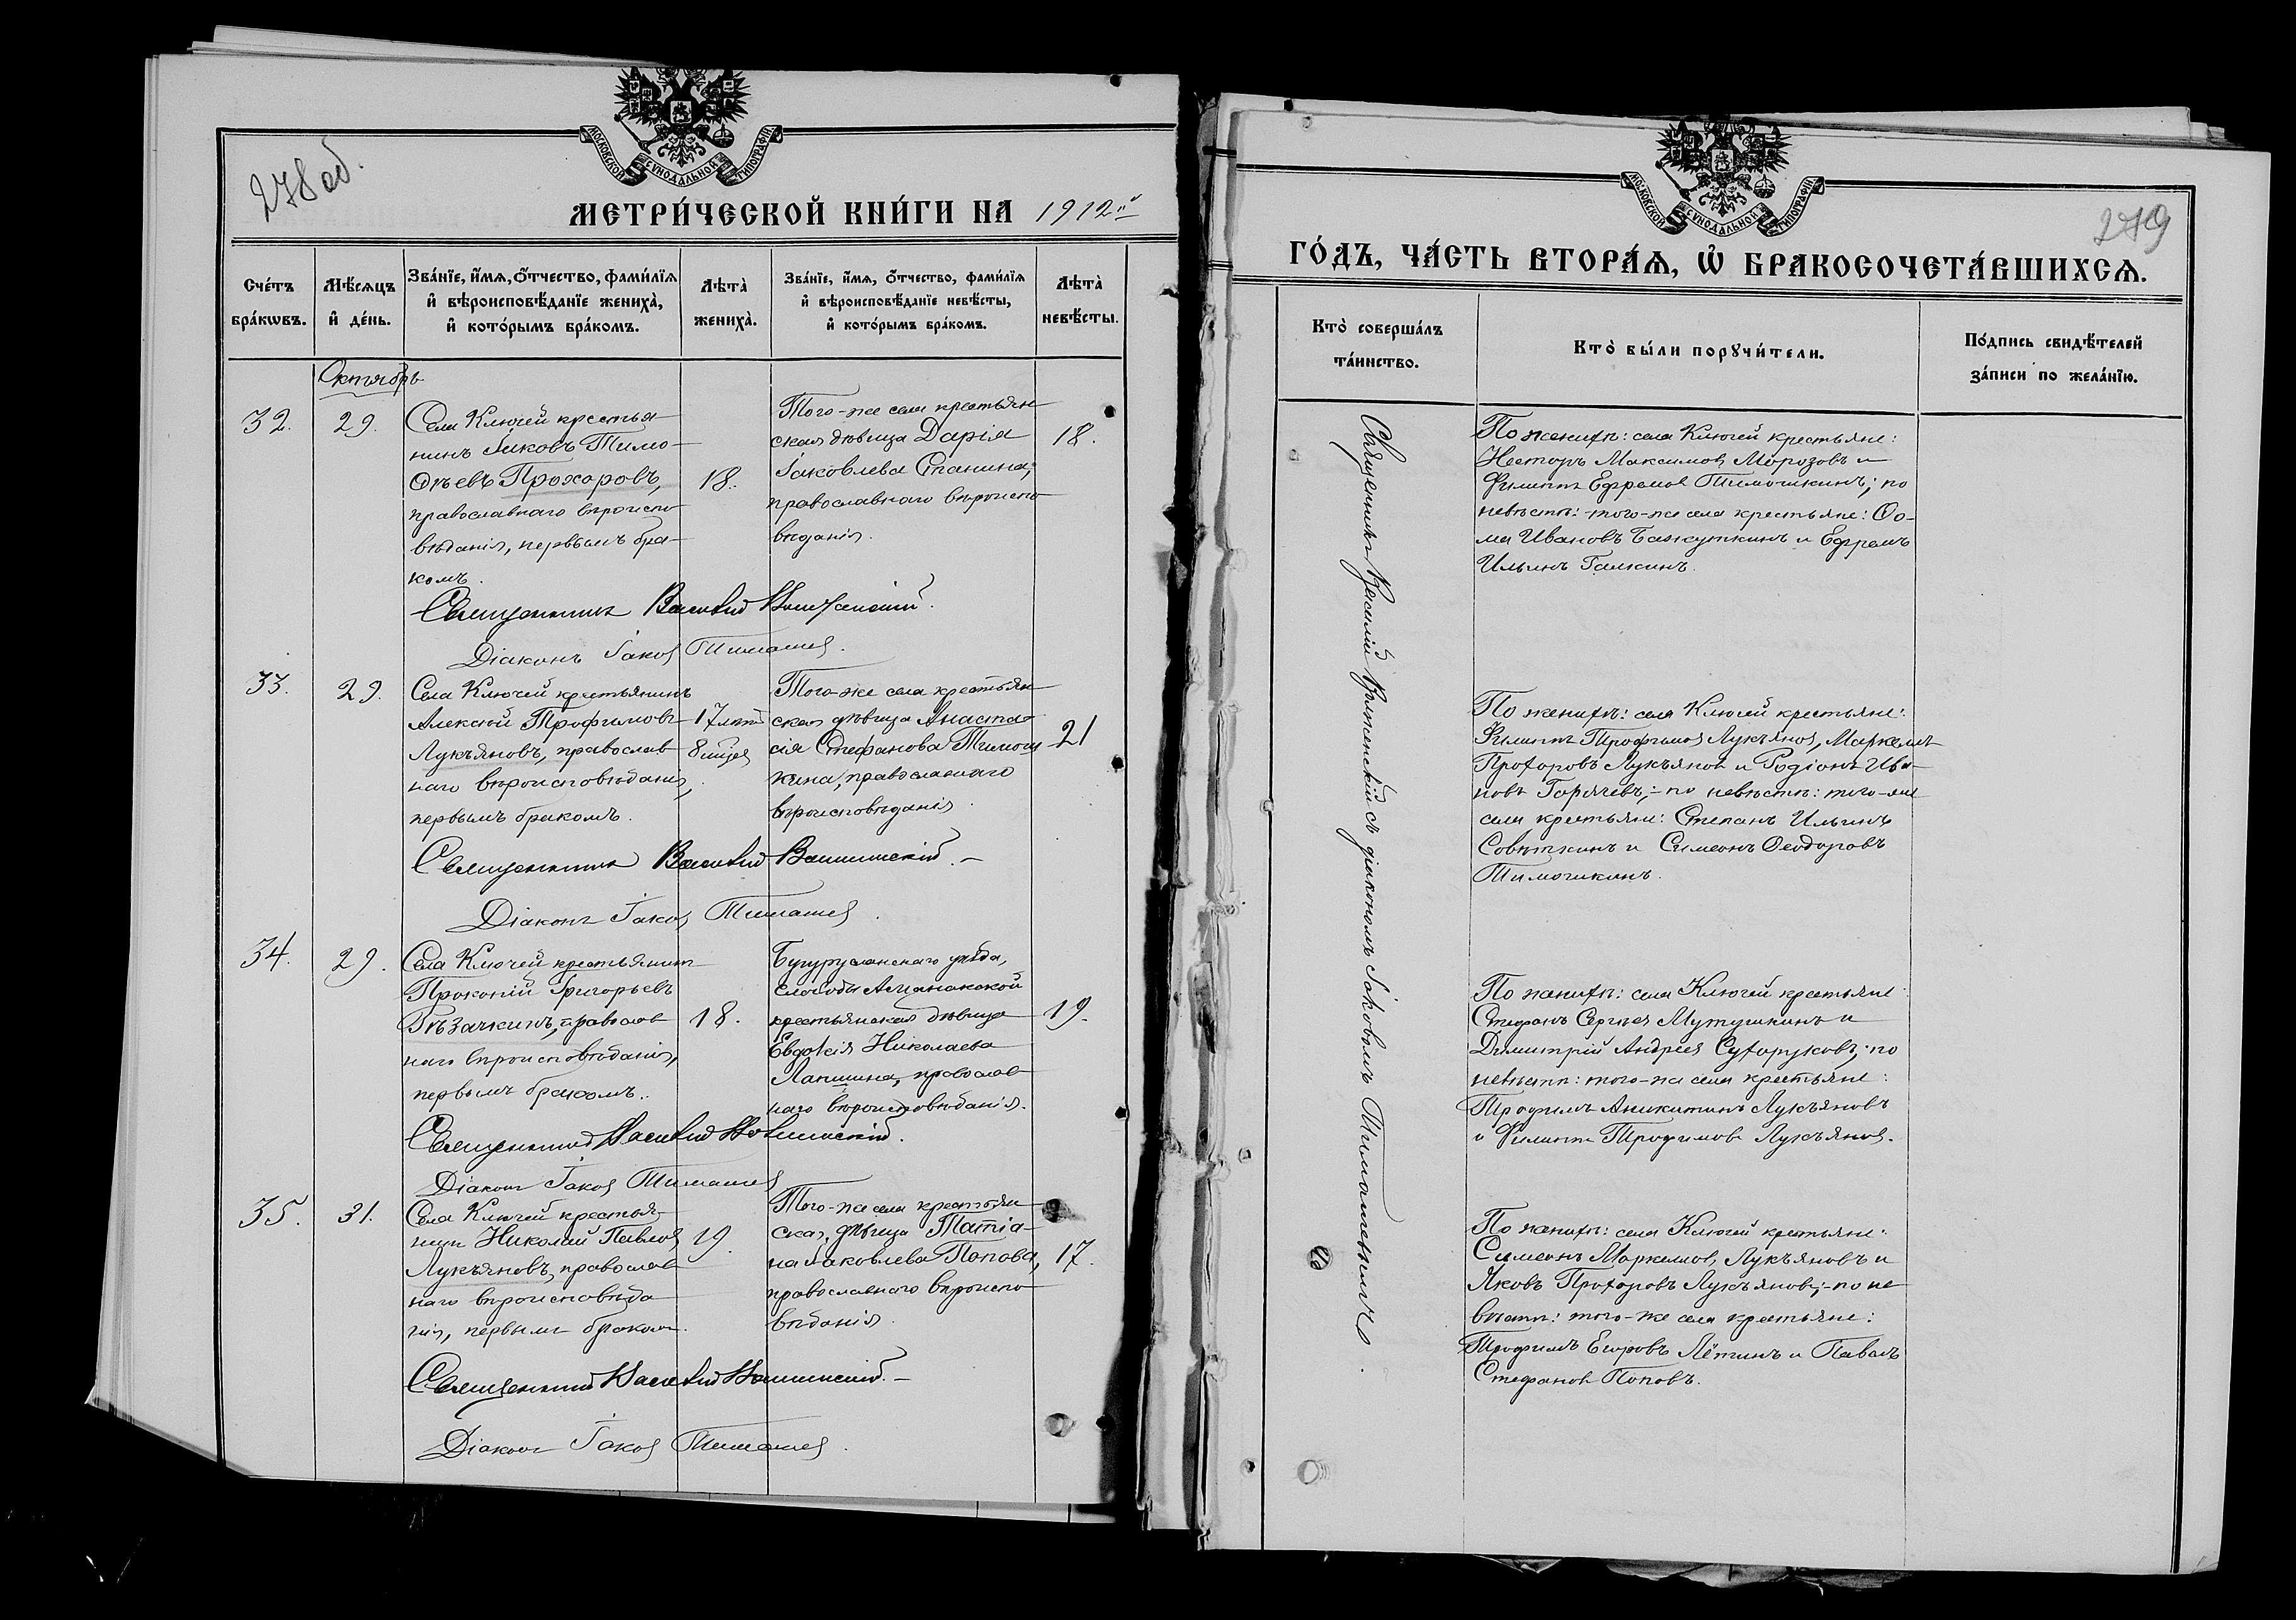 278 об.
МОСКОВСКОЙ СѴНОДАЛЬНОЙ ТИПОГРАФІИ
МЕТРИ́ЧЕСКОЙ КНИ́ГИ НА 1912й
Сче́тъ
бра́кѡвъ.
Мѣ́сяцъ
и҆ де́нь.
Зва́нїе, и҆́мя, ѻ҆́тчество, фами́лїя
и҆ вѣроисповѣ́данїе жениха̀,
и҆ кото́рымъ бра́комъ.
Лѣта̀
жениха̀.
Зва́нїе, и҆́мя, ѻ҆́тчество, фами́лїя
и҆ вѣроисповѣ́данїе невѣ́сты,
и҆ кото́рымъ бра́комъ.
Лѣта̀
невѣ́сты.
Октябрь
32.
29.
Села Ключей крестья-
нинъ Іаковъ Тимо-
ѳѣевъ Прохоровъ,
православнаго вѣроиспо-
вѣданія, первымъ бра-
комъ.
18.
Того-же села крестьян-
ская дѣвица Дарія
Іаковлева Спанина,
православнаго вѣроиспо-
вѣданія.
18.
Священникъ Василій
Діаконъ Іаковъ Тимашев
33.
29.
Села Ключей крестьянинъ
Алексій Трофимовъ
Лукъяновъ, православ-
наго вѣроисповѣданія,
первымъ бракомъ.
17 лѣтъ
8 мѣсяц
Того-же села крестьян-
ская дѣвица Анаста-
сія Стефанова Тимош-
кина, православнаго
вѣроисповѣданія.
21
Священникъ Василій
Діаконъ Іаков Тимашев
34.
29.
Села Ключей крестьянинъ
Прокопій Григорьевъ
православ-
наго вѣроисповѣданія,
первымъ бракомъ.
18.
Бугурусланскаго уѣзда,
слободы Аманакской
крестьянская дѣвица
Евдокія Николаева
Лапшина, православ-
наго вѣроисповѣданія.
19.
Священникъ Василій
Діаконъ Іаков Тимашев
35.
31.
Села Ключей крестья-
нинъ Николай Павлов
Лукъяновъ, православ-
наго вѣроисповѣда-
нія, первымъ бракомъ.
19.
Того-же села крестьян-
ская дѣвица Татіа-
на Іаковлева Попова,
православнаго вѣроиспо-
вѣданія.
17.
Священникъ Василій
Діаконъ Іаков Тимашев
МОСКОВСКОЙ СѴНОДАЛЬНОЙ ТИПОГРАФІИ
279
ГО́ДЪ, ЧА́СТЬ ВТОРА́Ѧ, Ѡ҆ БРАКОСОЧЕТА́ВШИХСѦ.
Кто̀ соверша́лъ
та́инство.
Кто̀ бы́ли порꙋчи́тели.
По́дпись свидѣ́телей
за́писи по жела́нїю.
Священникъ Василій съ діакономъ Іаковомъ Тимашевымъ.
По женихѣ: села Ключей крестьяне:
Несторъ Максимов Морозовъ и
Филиппъ Ефремов Тимошкинъ; по
невѣстѣ: того-же села крестьяне: Ѳо-
ма Ивановъ Бажуткинъ и Ефремъ
Ильинъ Галкинъ.
По женихѣ: села Ключей крестьяне:
Филиппъ Трофимов Лукъянов, Маркелъ
Прохоровъ Лукъянов и Родіонъ Ива-
новъ Горячевъ; - по невѣстѣ: того-же
села крестьяне: Степанъ Ильинъ
Совѣткинъ и Симеонъ Ѳеодоровъ
Тимошкинъ.
По женихѣ: села Ключей крестьяне
Стефанъ Сергѣев Мутушкинъ и
Димитрій Андреев Сухоруковъ; по
невѣстѣ: того-же села крестьяне:
Трофимъ Аникитинъ Лукъяновъ
и Филиппъ Трофимовъ Лукъянов.
По женихѣ: села Ключей крестьяне:
Симеонъ Маркелов Лукъяновъ и
Яковъ Прохоровъ Лукъяновъ; - по не-
вѣстѣ: того-же села крестьяне:
Трофимъ Егоровъ Лётинъ и Павелъ
Стефанов Поповъ.